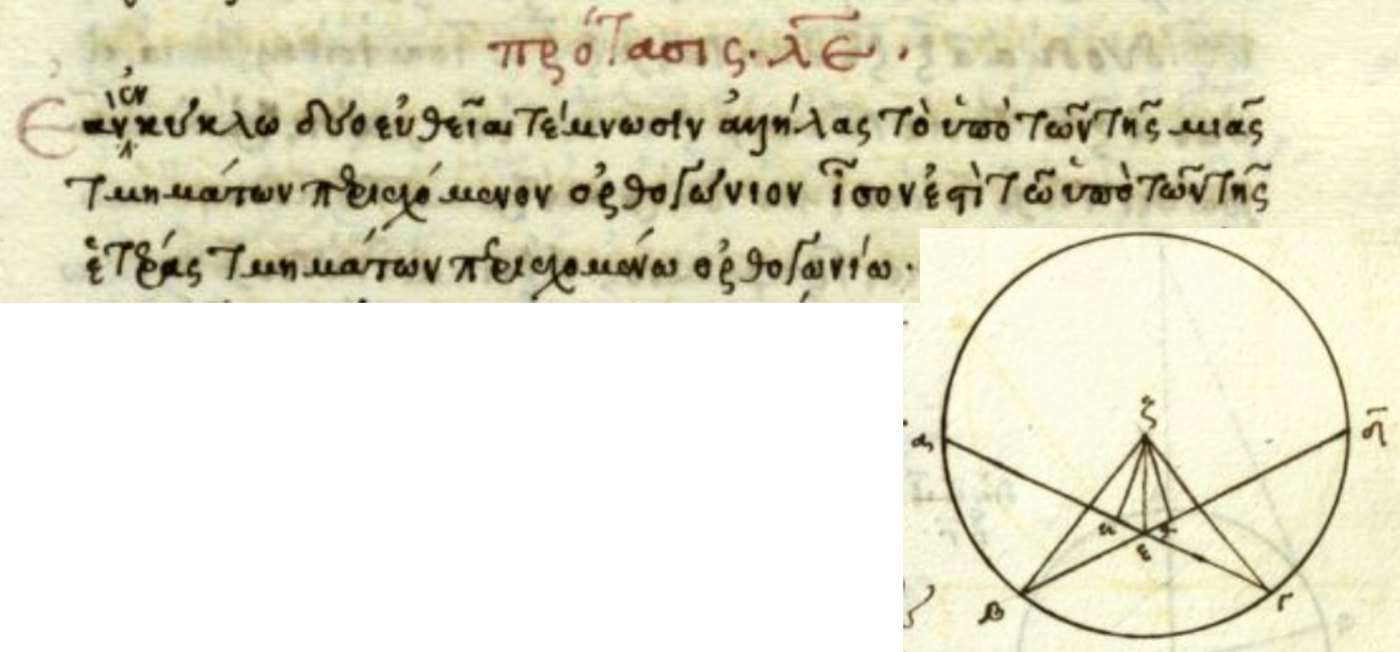 πρότασις· λε̅ ·
Ἐὰν ἐν κύκλω δύο εὐθεῖαι τέμνωσιν ἀλλήλας τὸ ὑπὸ τῶν τῆς μιᾶς
τμημάτων περιεχόμενον ὀρθογώνιον ἴσον ἐστὶ τῶ ὑπὸ τῶν τῆς
ἑτέρας τμημάτων περιεχομένω ὀρθογωνίω ·
ζ
α
η
ε
β
γ